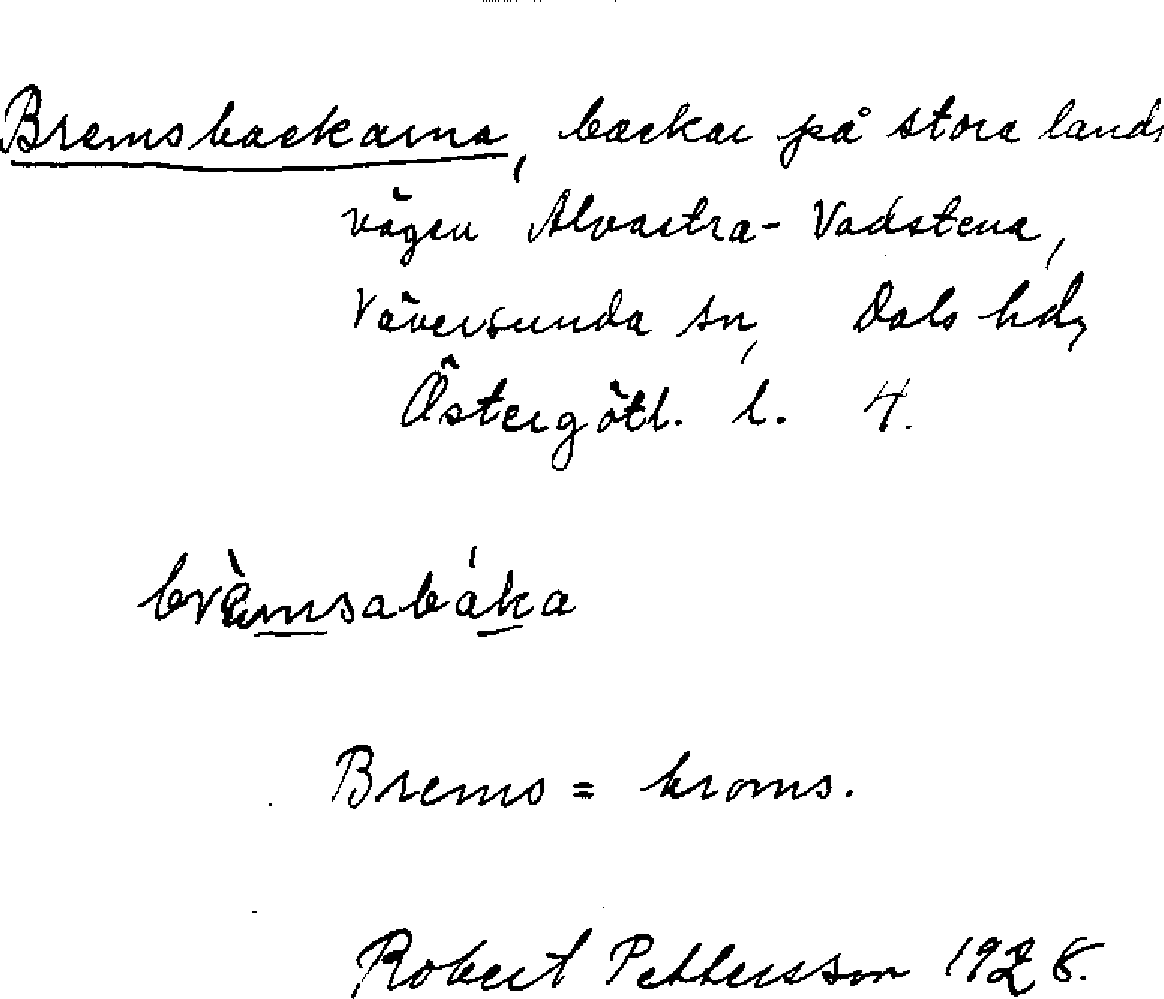 Bremsbackarna, backar på stora lands
vägen Alvastra-Vadstena,
Väversunda sn, Dals hd,
Östergötl. l. 4.
brèmsabáka
Brems = broms.
Robert Pettersson 1928.